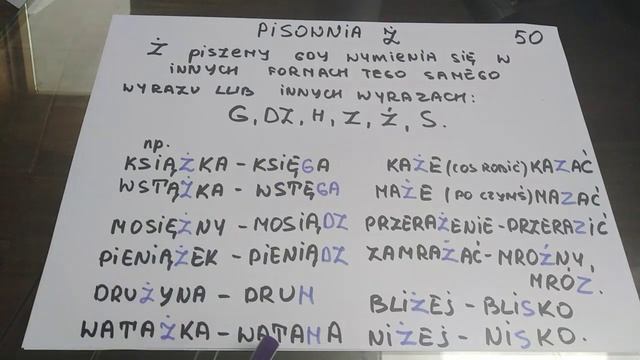 PISOWNIA Ż 50
Ż PISZEMY GDY WYMIENIA SIĘ W
INNYCH FORMACH TEGO SAMEGO
WYRAZU LUB INNYCH WYRAZACH:
G, DZ, H, Z, Ź, S.
np.
KSIĄŻKA - KSIĘGA
WSTĄŻKA - WSTĘGA
MOSIĘŻNY - MOSIĄDZ
PIENIĄŻEK - PIENIĄDZ
DRUŻYNA - DRUH
WATAŻKA - WATAHA
KAŻE (COŚ ROBIĆ) KAZAĆ
MAŻE (PO CZYMŚ) MAZAĆ
PRZERAŻENIE - PRZERAZIĆ
ZAMRAŻAĆ - MROŹNY,
MRÓZ.
BLIŻEJ - BLISKO
NIŻEJ - NISKO.